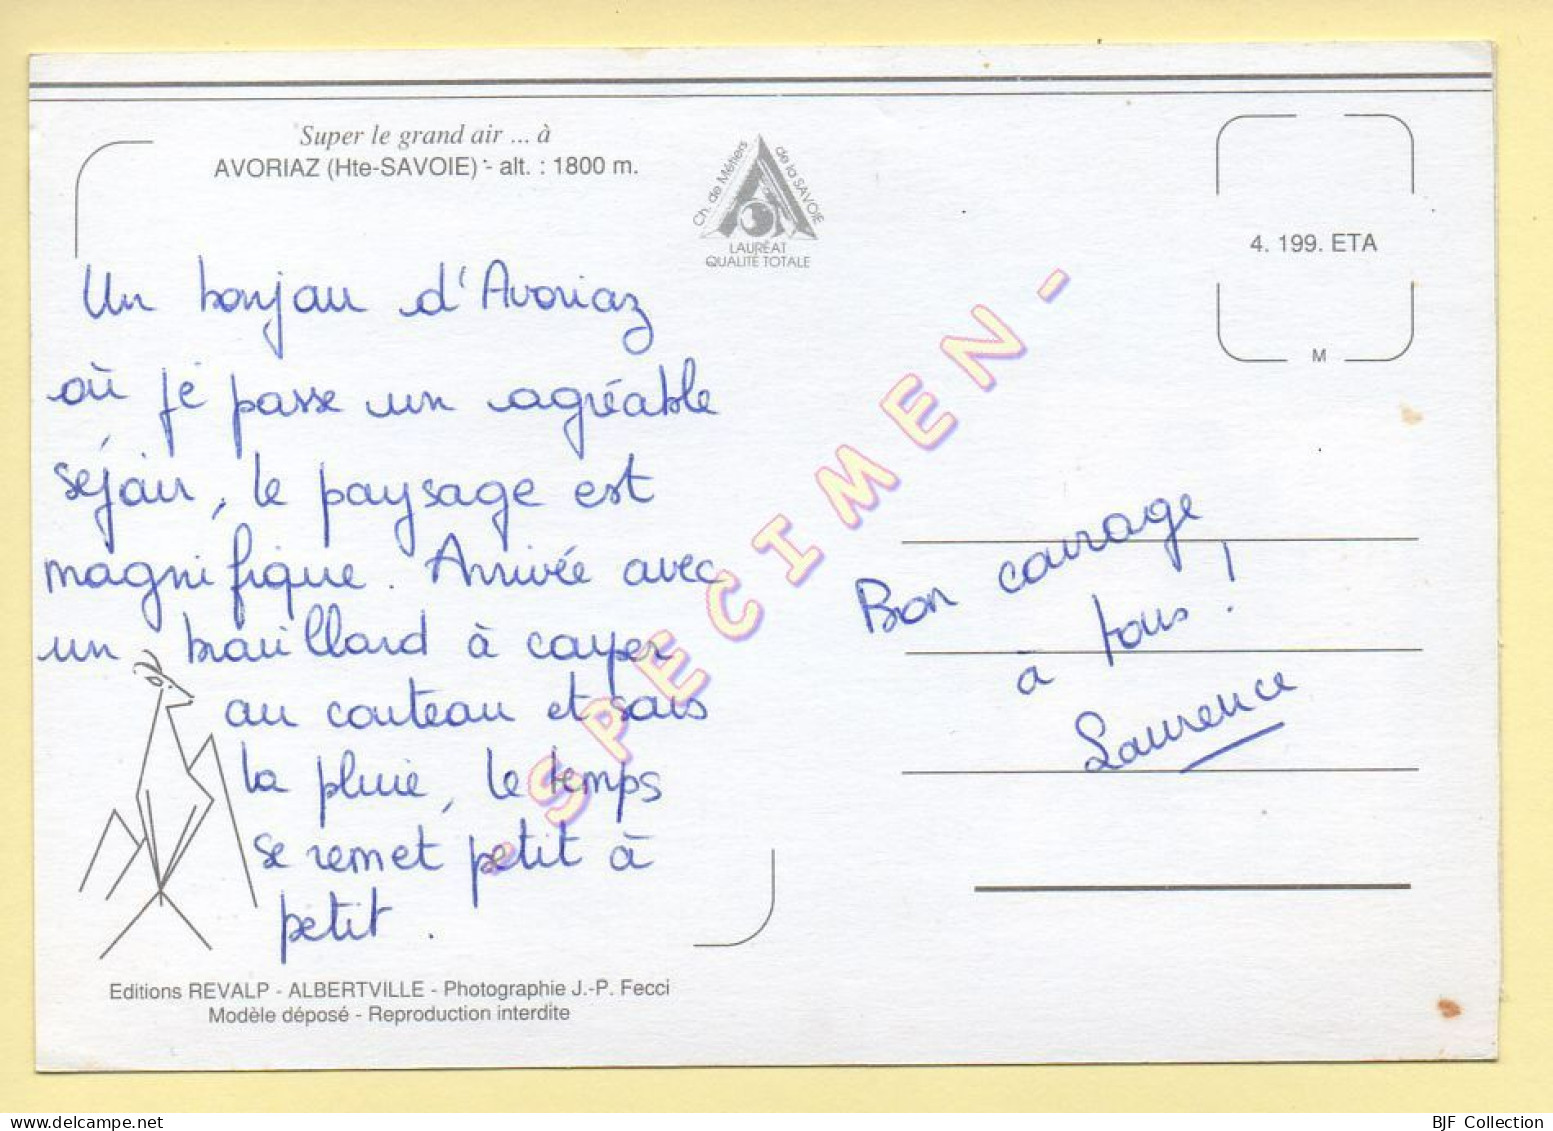 Super le grand air ... à
AVORIAZ (Hte-SAVOIE) - alt. : 1800 m.
Ch. de Métiers de la SAVOIE
LAURÉAT
QUALITÉ TOTALE
4. 199. ETA
M
Un bonjour d'Avoriaz
où je passe un agréable
séjour, le paysage est
magnifique. Arrivée avec
un brouillard à couper
au couteau et sous
la pluie, le temps
se remet petit à
petit.
Bon courage
à tous !
Laurence
- SPECIMEN -
Editions REVALP - ALBERTVILLE - Photographie J.-P. Fecci
Modèle déposé - Reproduction interdite
BJF Collection